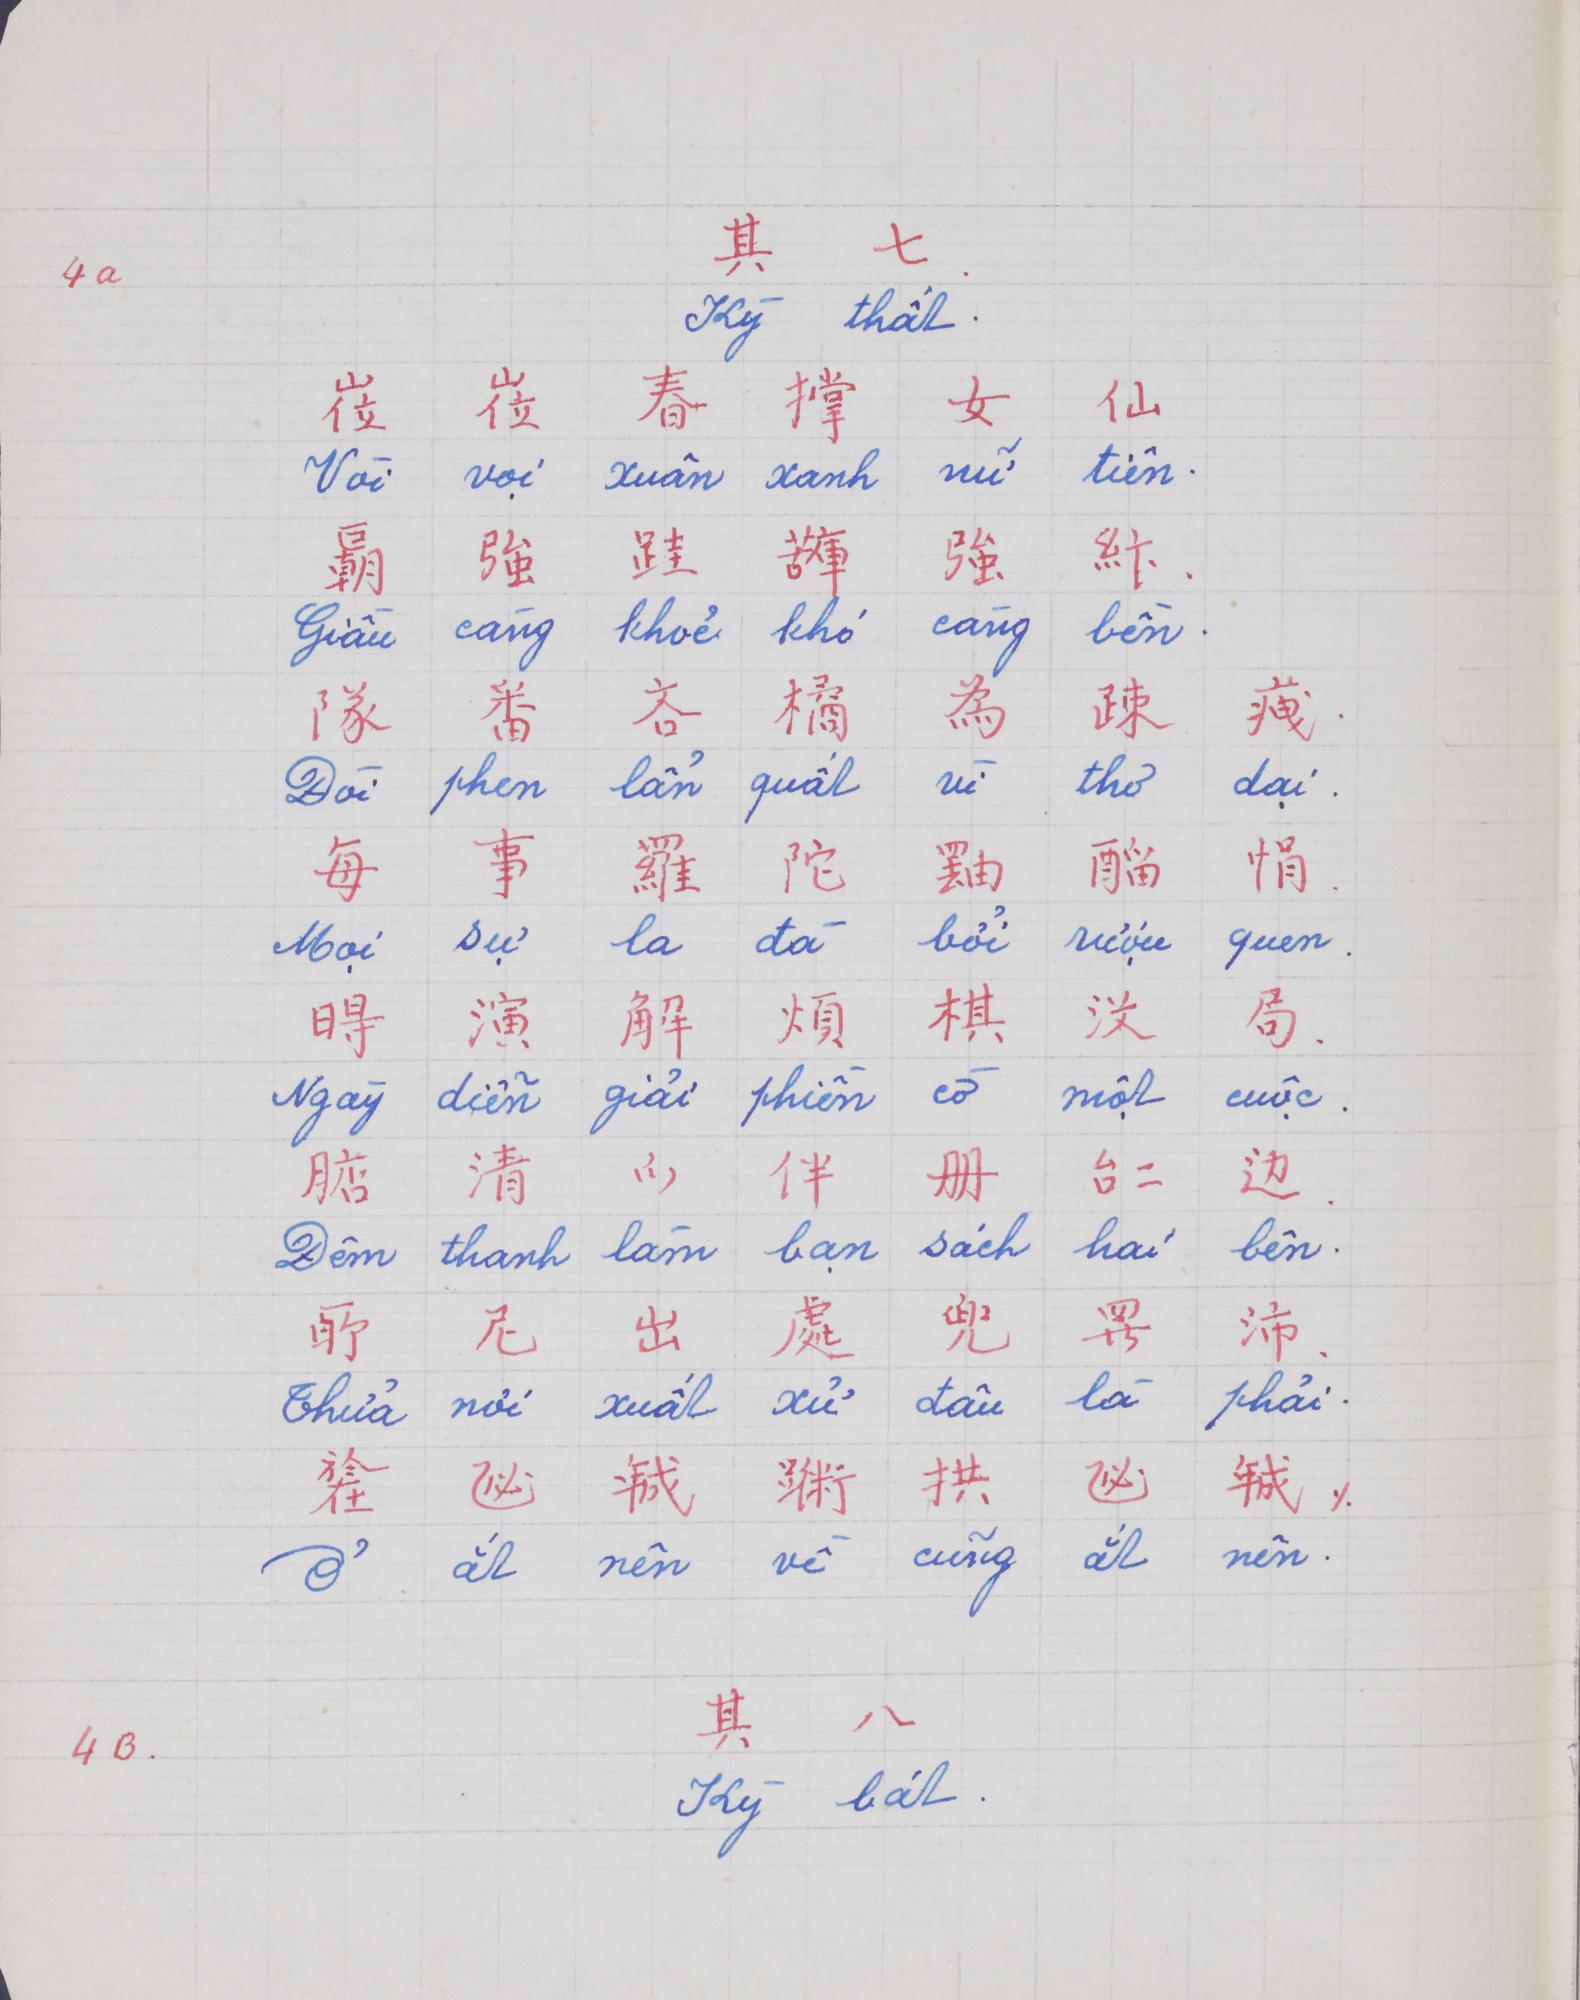 4a
其 七.
Kỳ thất.
崴 崴 春 撑 女 仙
Vòi vọi xuân xanh nữ tiên.
強 跬 強
Giầu càng khoẻ khó càng bền.
隊 番 吝 橘 為 疎
Đòi phen lẩn quất vì thơ dại.
每 事 羅 陀 悁.
Mọi sự la đà bởi rượu quen.
㝵 演 解 煩 棋 没 局.
Ngày diễn giải phiền cờ một cuộc.
清 伴 册 边.
Đêm thanh làm bạn sách hai bên.
尼 出 處 兜 沛.
Thửa nơi xuất xứ đâu là phải.
拱
Ở ắt nên về cũng ắt nên.
4B.
其 八
Kỳ bát.